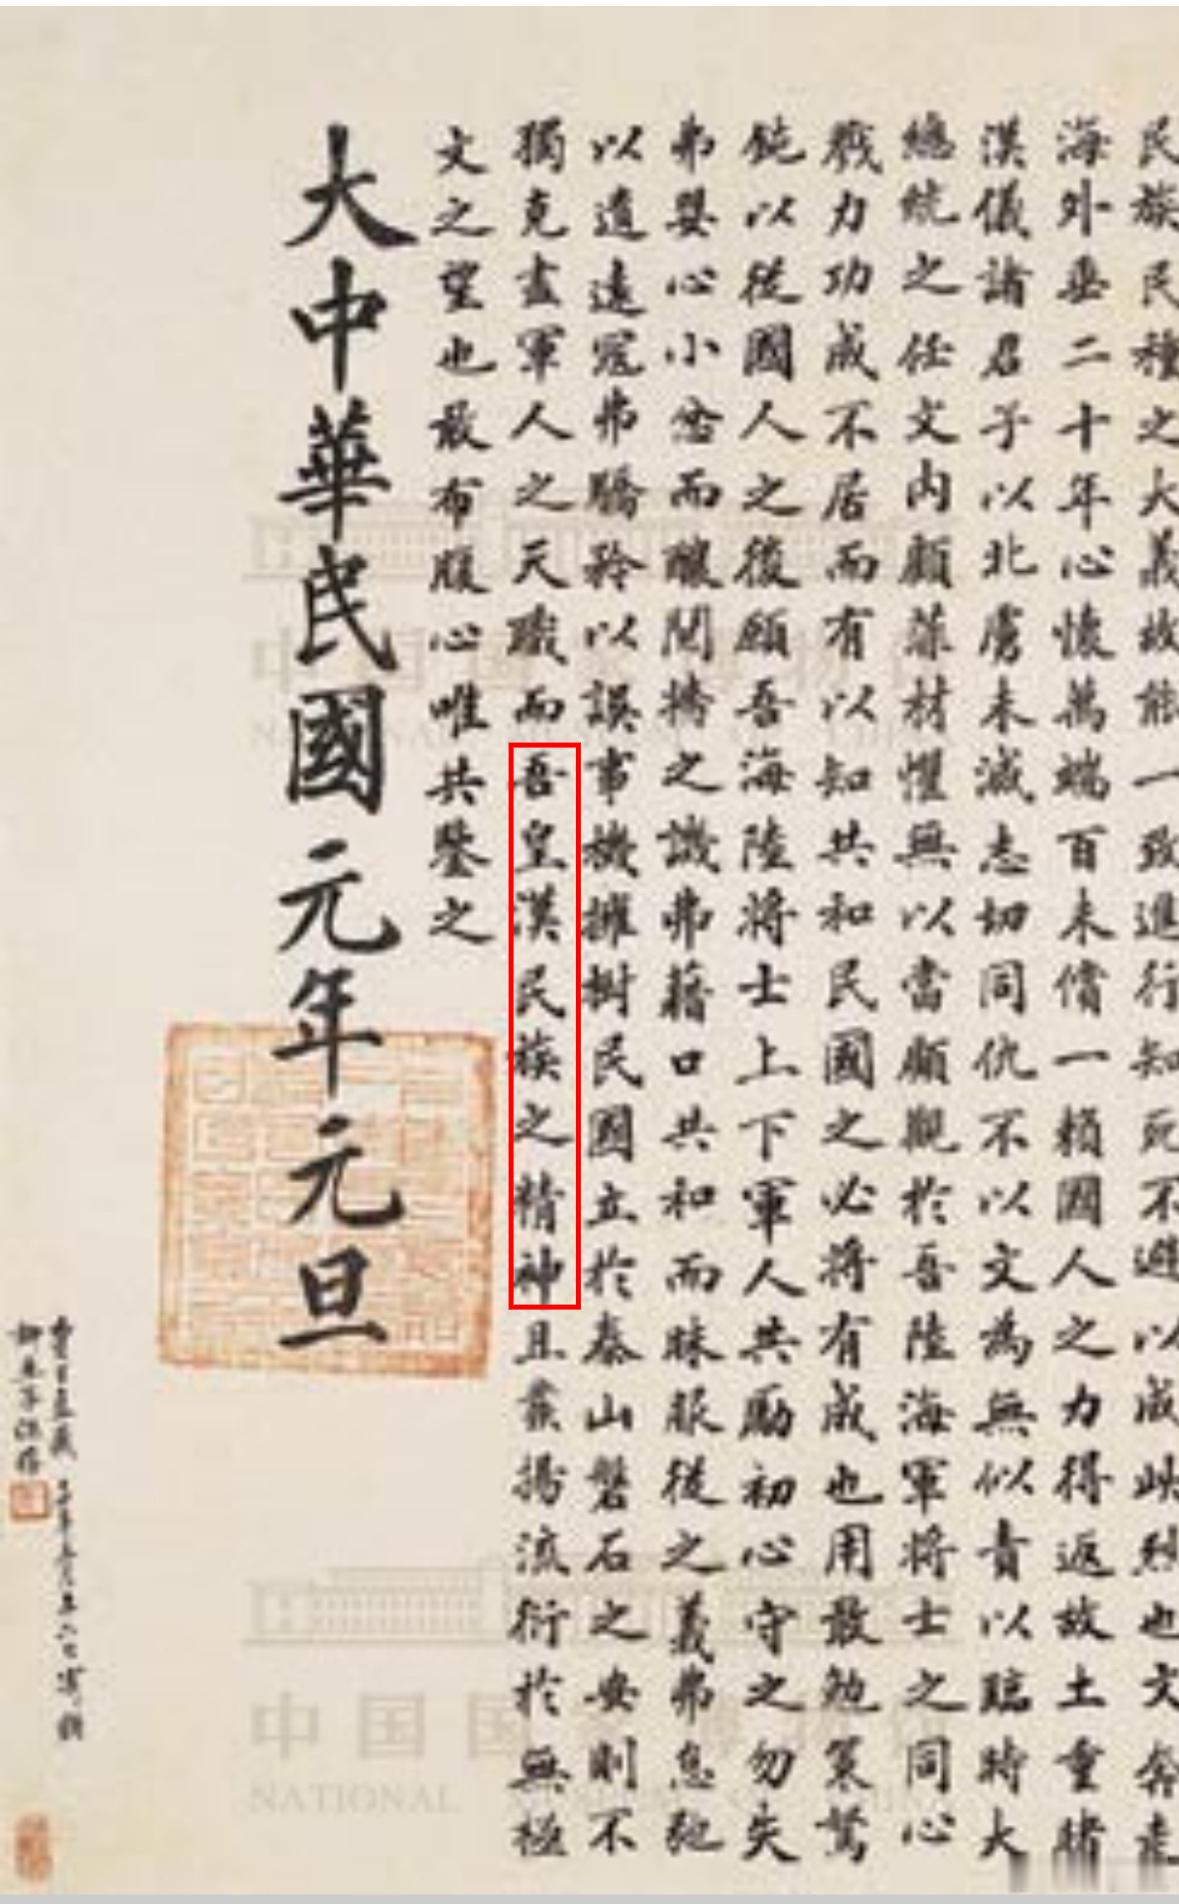 民族民種之大義故能一致進行知死不避以成此烈也文奔走
海外垂二十年心懷萬端百未償一賴國人之力得返故土重睹
漢儀諸君子以北虜未滅志切同仇不以文為無似責以臨時大
總統之任文內顧菲材懼無以當顧觀於吾陸海軍將士之同心
戮力功成不居而有以知共和民國之必將有成也用敢勉策駑
鈍以從國人之後願吾海陸將士上下軍人共勵初心守之勿失
弗嬰心小忿而釀鬩牆之譏弗藉口共和而昧服從之義弗怠弛
以遺遠寇弗驕矜以誤事機擁樹民國立於泰山磐石之安則不
獨克盡軍人之天職而吾皇漢民族之精神且發揚流衍於無極
文之望也敢布腹心唯共鑒之
大中華民國元年元旦
中国国
NATIONAL